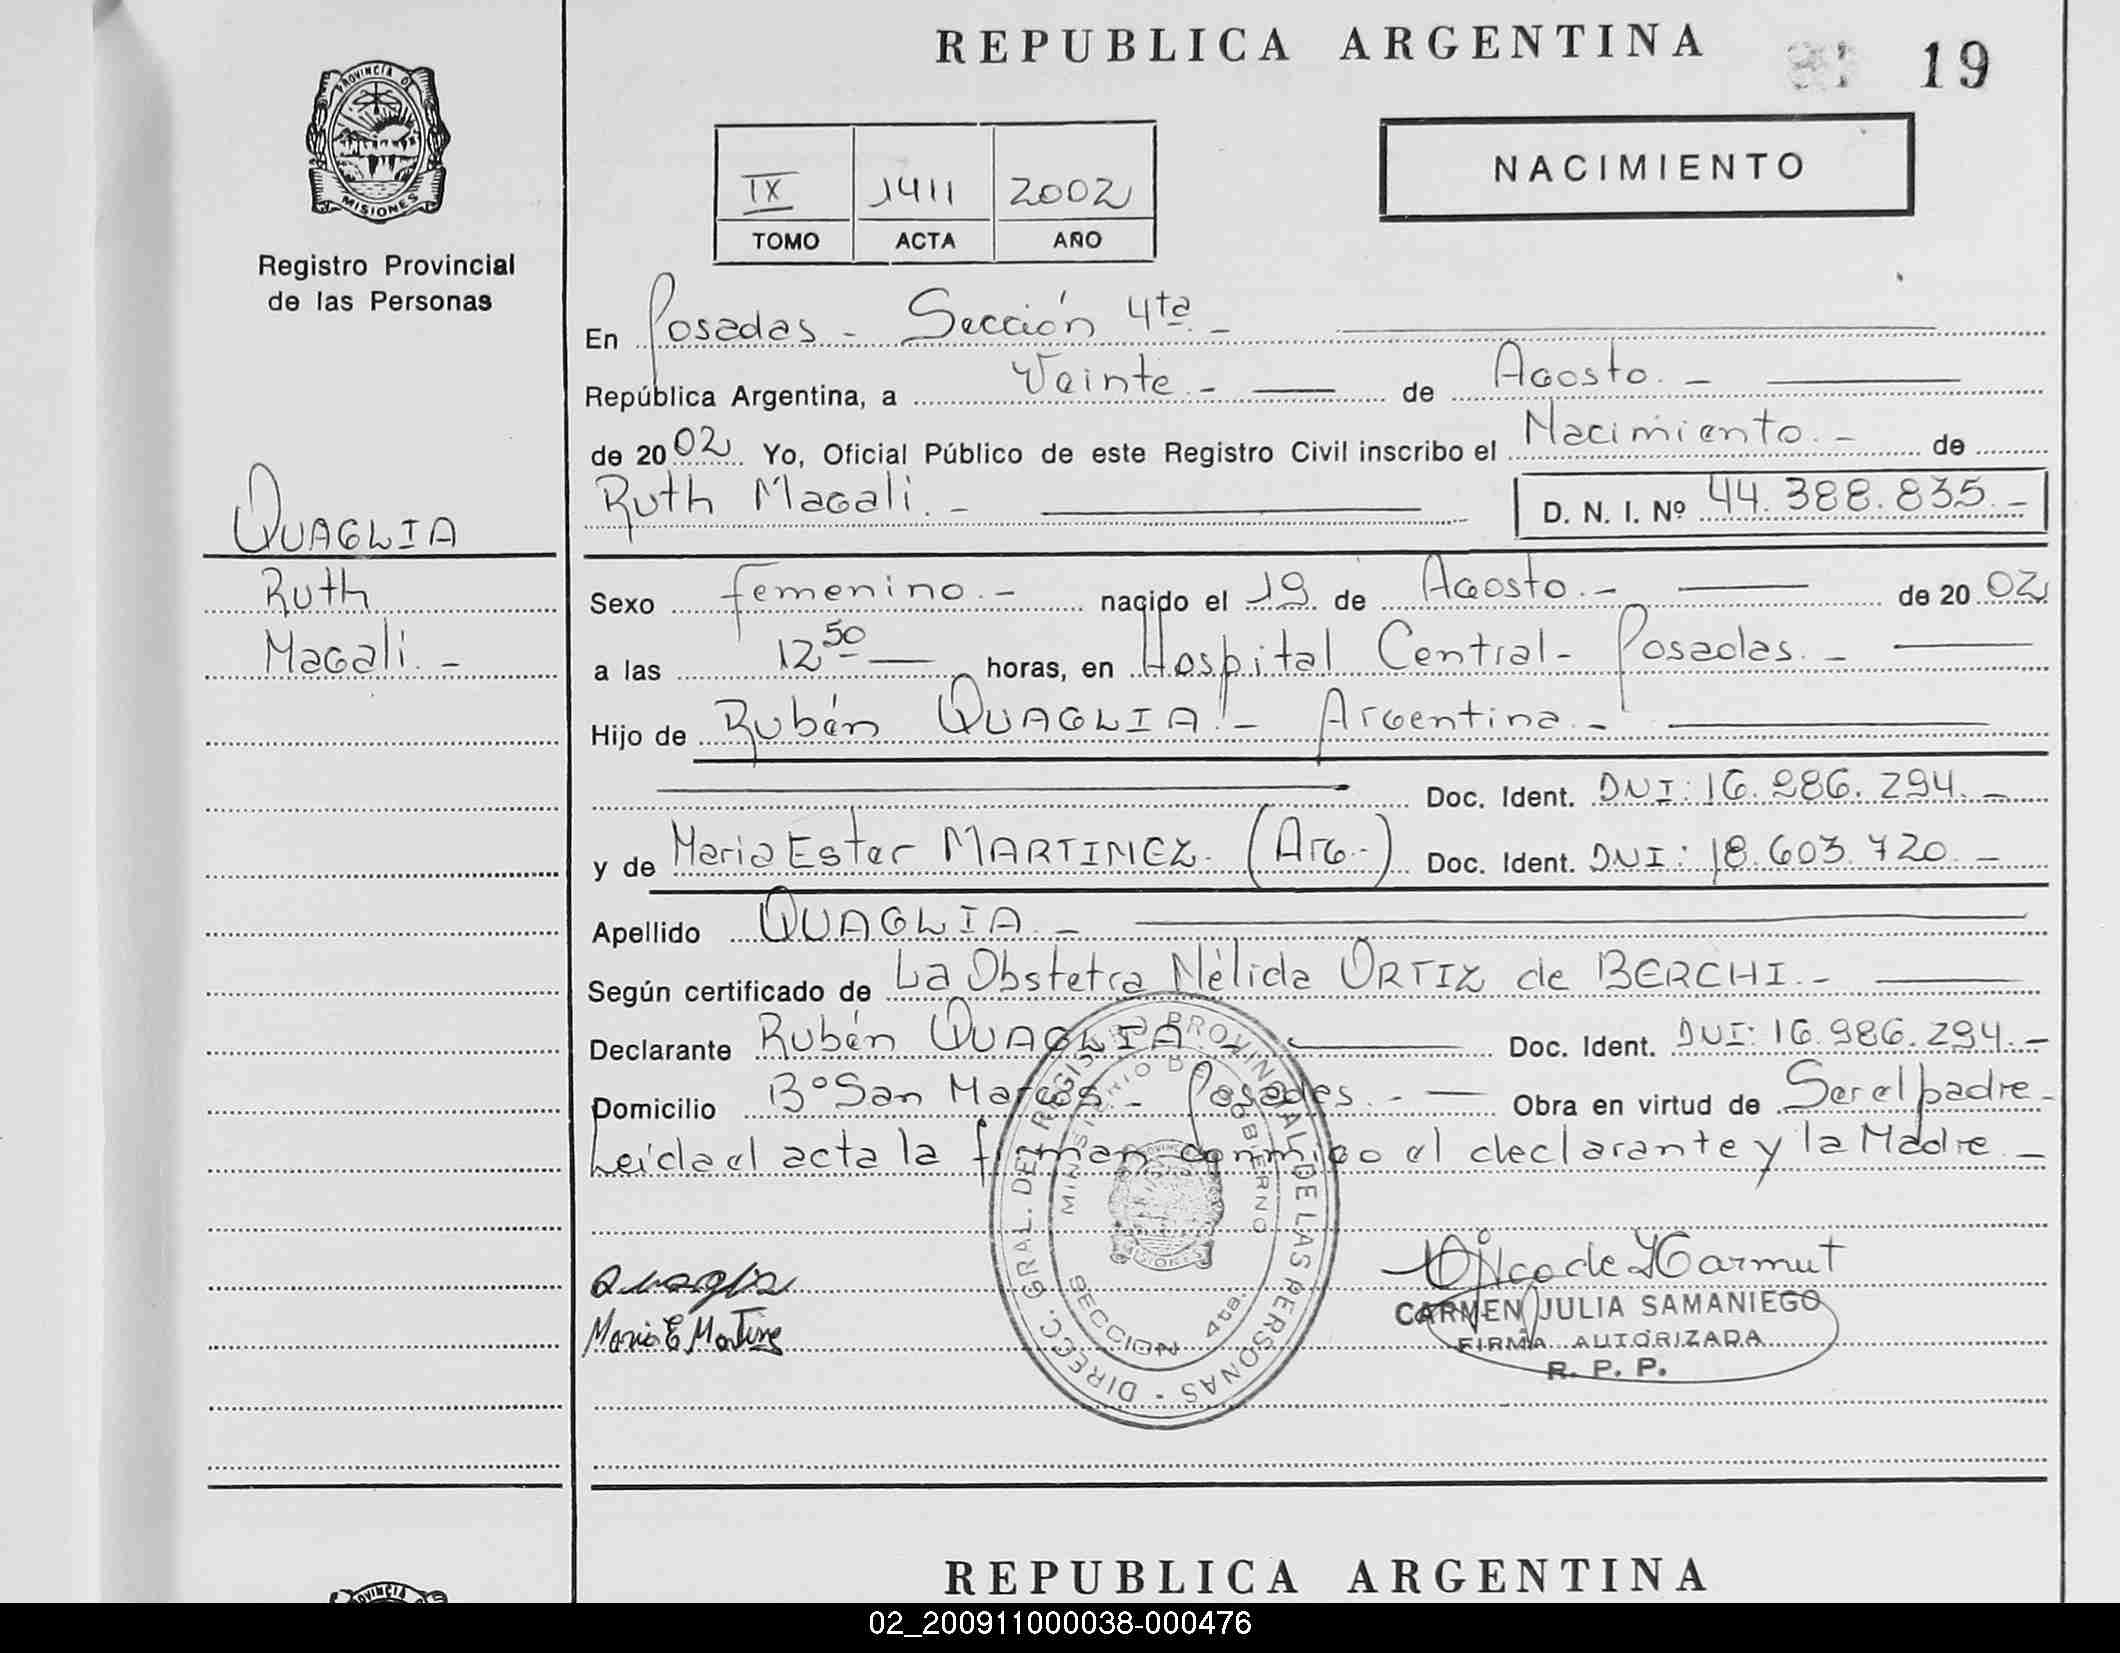 REPUBLICA ARGENTINA
19
PROVINCIA DE
MISIONES
Registro Provincial
de las Personas
IX 1411 2002
TOMO ACTA AÑO
NACIMIENTO
En Posadas - Sección 4ta. -
República Argentina, a Veinte. - de Agosto. -
de 2002 Yo, Oficial Público de este Registro Civil inscribo el Nacimiento. - de
Ruth Magali. - D. N. I. Nº 44.388.835. -
QUAGLIA
Ruth
Magali. -
Sexo femenino. - nacido el 19 de Agosto. - de 2002
a las 12 50 horas, en Hospital Central - Posadas. -
Hijo de Rubén QUAGLIA. - Argentina. -
Doc. Ident. DNI: 16.986.294. -
y de Maria Ester MARTINEZ. (Arg.-) Doc. Ident. DNI: 18.603.720. -
Apellido QUAGLIA. -
Según certificado de La Obstetra Nélida ORTIZ de BERCHI. -
Declarante Rubén QUAGLIA - Doc. Ident. DNI: 16.986.294. -
Domicilio Bº San Marcos - Posadas. - Obra en virtud de Ser el padre -
Leída el acta la firman conmigo el declarante y la Madre -
DIRECC. GRAL. DEL REGISTRO PROVINCIAL DE LAS PERSONAS -
MINISTERIO DE GOBIERNO
MISIONES
SECCION 4ta.
Quaglia
Maria E Martinez
de Karmut
CARMEN JULIA SAMANIEGO
FIRMA AUTORIZADA
R. P. P.
REPUBLICA ARGENTINA
PROVINCIA
02_200911000038-000476